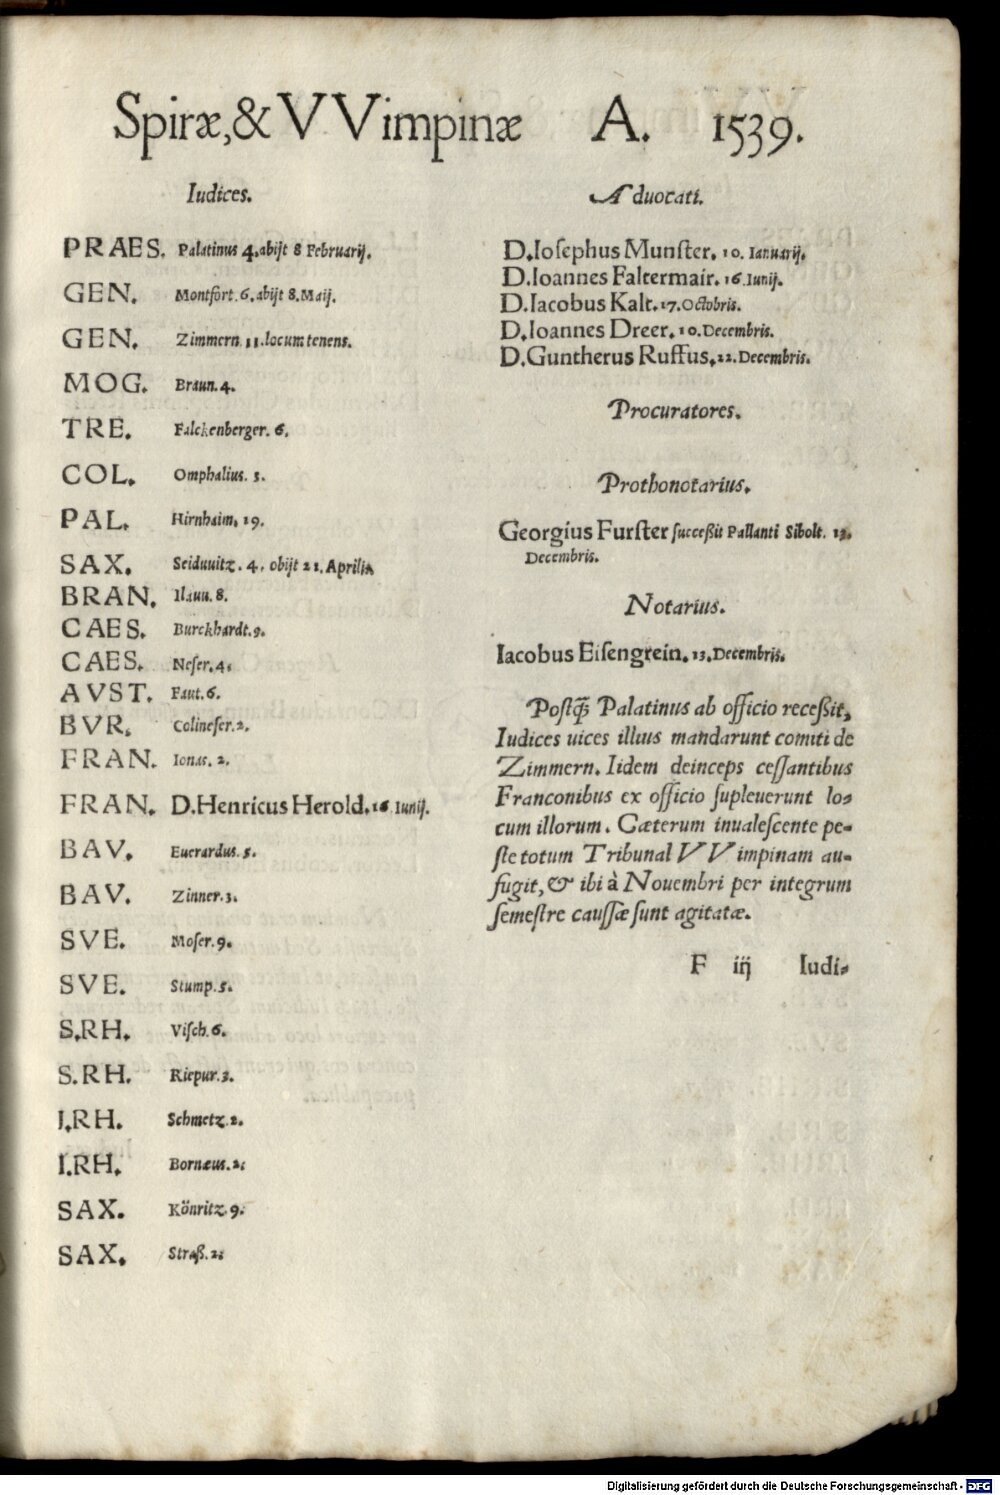 Spiræ, & VVimpinæ A. 1539.
Iudices.
PRAES. Palatinus 4. abijt 8 Februarij.
GEN. Montfort. 6. abijt 8. Maij.
GEN. Zimmern. 11. locum tenens.
MOG. Braun. 4.
TRE. Falckenberger. 6.
COL. Omphalius. 3.
PAL. Hirnhaim. 19.
SAX. Seiduuitz. 4. obijt 21. Aprilis
BRAN. Ilauu. 8.
CAES. Burckhardt. 9.
CAES. Neser. 4.
AVST. Faut. 6.
BVR. Colineser. 2.
FRAN. Ionas. 2.
FRAN. D. Henricus Herold. 16 Iunij.
BAV. Euerardus. 5.
BAV. Zinner. 3.
SVE. Moser. 9.
SVE. Stump. 5.
S.RH. Visch. 6.
S.RH. Riepur. 3.
I.RH. Schmetz. 2.
I.RH. Bornæus. 2.
SAX. Könritz. 9.
SAX. Straß. 2.
Aduocati.
D. Iosephus Munster. 10. Ianuarij.
D. Ioannes Faltermair. 16. Iunij.
D. Iacobus Kalt. 17. Octobris.
D. Ioannes Dreer. 10. Decembris.
D. Guntherus Ruffus. 22. Decembris.
Procuratores.
Prothonotarius.
Georgius Furster succeßit Pallanti Sibolt. 13.
Decembris.
Notarius.
Iacobus Eisengrein. 13. Decembris.
Postq̃ Palatinus ab officio receßit,
Iudices uices illius mandarunt comiti de
Zimmern. Iidem deinceps cessantibus
Franconibus ex officio supleuerunt lo-
cum illorum. Cæterum inualescente pe-
ste totum Tribunal VVimpinam au-
fugit, & ibi à Nouembri per integrum
semestre caussæ sunt agitatæ.
F iij Iudi-
Digitalisierung gefördert durch die Deutsche Forschungsgemeinschaft - DFG